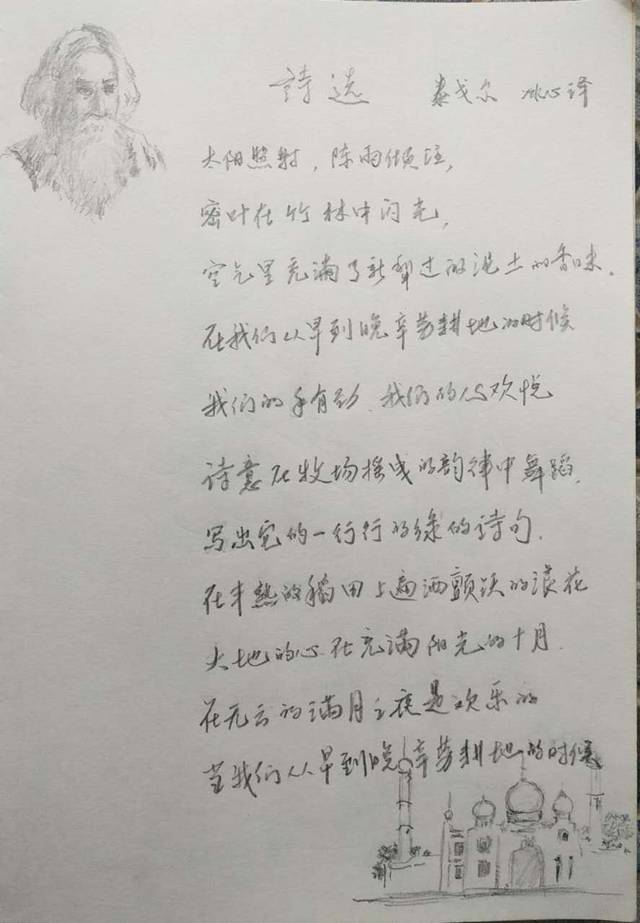 詩选 泰戈尔 冰心译
太阳照射，陈雨倾注，
密叶在竹林中闪光，
空气里充满了新犁过的泥土的香味．
在我们从早到晚辛劳耕地的时候
我们的手有劲．我们的心欢悦
诗意在牧场摇曳的韵律中舞蹈．
写出它的一行行的绿的诗句．
在半熟的稻田上遍洒颤跃的浪花
大地的心在充满阳光的十月．
在无云的满月之夜是欢乐的
当我们从早到晚辛劳耕地的时候